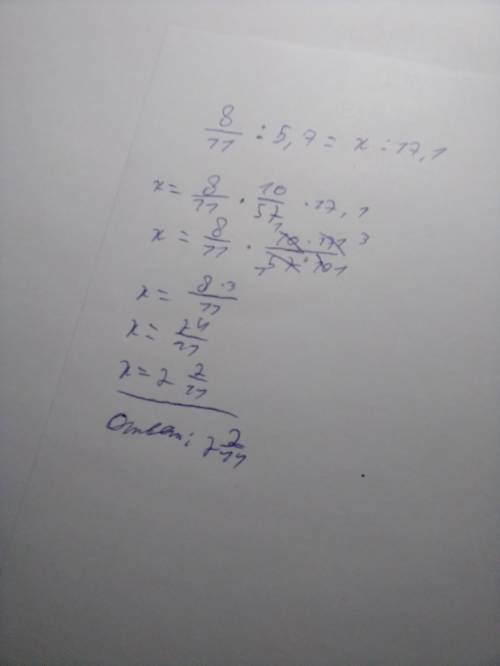 8/11 : 5,7 = x : 17,1
x = 8/11 · 10/57 · 17,1
x = 8/11 · 10 · 171 3/57 · 10 1
x = 8 · 3/11
x = 24/11
x = 2 2/11
Ответ: 2 2/11